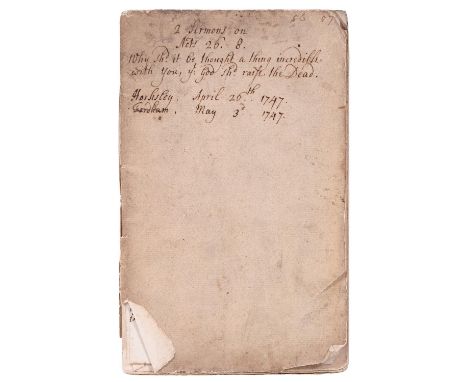 56 57
2 Sermons on
Acts 26. 8.
Why shd. it be thought a thing incredible
with You, yt. God shd. raise the Dead.
Horksley. April 26th. 1747.
Fordham. May 3d. 1747.